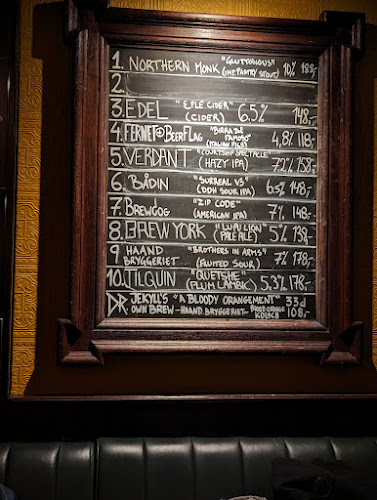 1. NORTHERN MONK "GLUTTONOUS" (PASTRY STOUT) 10% 188,-
2.
3. EDEL "EPLE CIDER" (CIDER) 6.5% 148,-
4. FERNET@BEERFLAG "BIRRA DE FAMOSO" (ITALIAN PILS) 4,8% 118,-
5. VERDANT "COURTSHIP SPECTACLE" (HAZY IPA) 7.2% 158,-
6. BÅDIN "SURREAL V3" (DDH SOUR IPA) 6.5% 148,-
7. BREWDOG "ZIP CODE" (AMERICAN IPA) 7% 148,-
8. BREW YORK "LUPU LION" (PALE ALE) 5% 138,-
9. HAAND BRYGGERIET "BROTHERS IN ARMS" (FRUITED SOUR) 7% 178,-
10. TILQUIN "QUETSHE" (PLUM LAMBIC) 5.3% 178,-
DR. JEKYLL'S "A BLOODY ORANGEMENT" 33cl
OWN BREW - HAAND BRYGGERIET - BLOOD ORANGE KÖLSCH 108,-